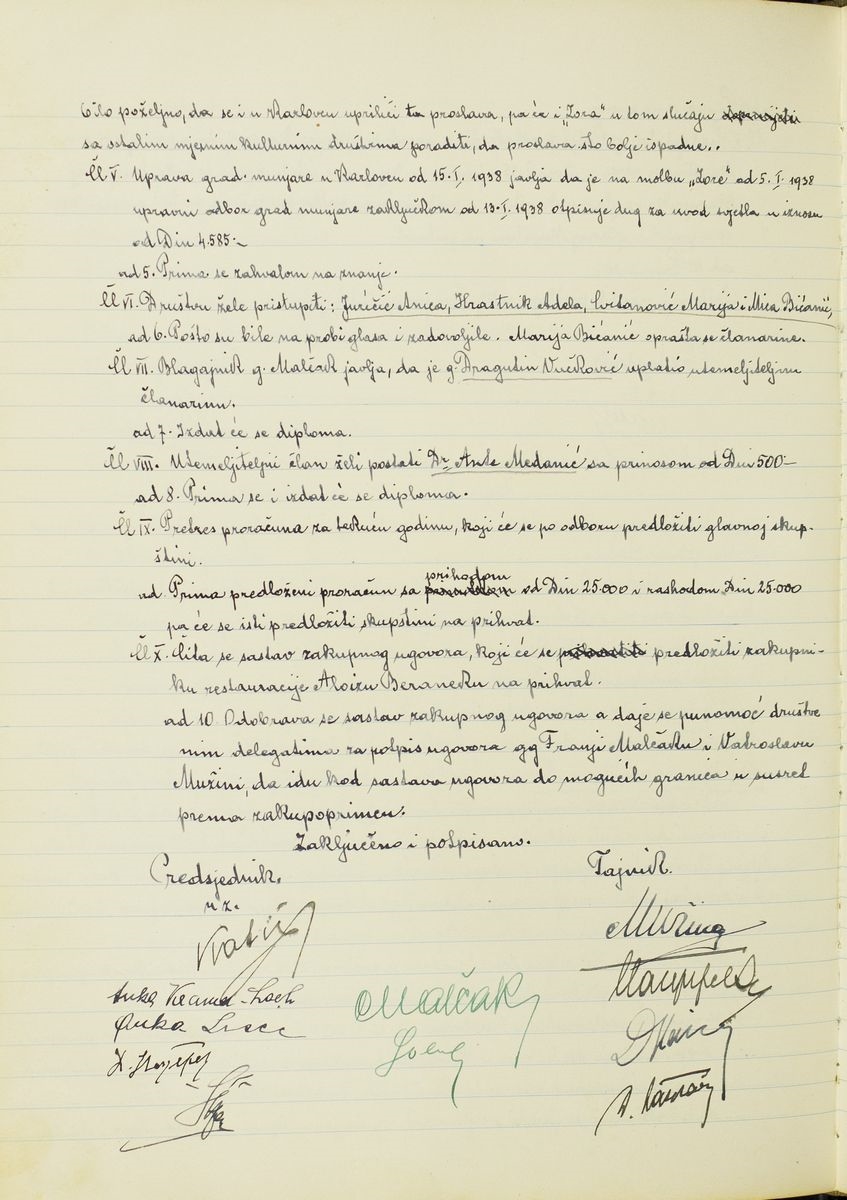 bilo poželjno, da se i u Karlovcu upriliči ta proslava, pa će i „Zora" u tom slučaju
sa ostalim mjesnim kulturnim društvima poraditi, da proslava što bolje ispadne..
Čl V. Uprava grad. munjare u Karlovcu od 15. I. 1938 javlja da je na molbu „Zore" od 5. I. 1938
upravni odbor grad munjare zaključkom od 13. I. 1938 otpisuje dug za uvod svjetla u iznosu
od Din 4.585.-
ad 5. Prima se zahvalom na znanje.
Čl VI. Društvu žele pristupiti: Juričić Anica, Hrastnik Adela, Cvitanović Marija i Mica Bićanić,
ad 6. Pošto su bile na probi glasa i zadovoljile. Marija Bićanić oprašta se članarine.
Čl VII. Blagajnik g. Malčak javlja, da je g. Dragutin Vučković uplatio utemeljiteljnu
članarinu.
ad 7. Izdat će se diploma.
Čl VIII. Utemeljiteljni član želi postati Dr. Ante Medanić sa prinosom od Din 500.-
ad 8. Prima se i izdat će se diploma.
Čl IX. Pretres proračuna za tekuću godinu, koji će se po odboru predložiti glavnoj skup-
štini.
ad. Prima predloženi proračun sa prihodom od Din 25.000 i rashodom Din 25.000
pa će se isti predložiti skupštini na prihvat.
Čl X. Čita se sastav zakupnog ugovora, koji će se predložiti zakupni-
ku restauracije Aloizu Beraneku na prihvat.
ad 10. Odobrava se sastav zakupnog ugovora a daje se punomoć društve
nim delegatima za potpis ugovora gg Franji Malčaku i Vatroslavu
Mužini, da idu kod sastava ugovora do mogućih granica u susret
prema zakupoprimcu.
Zaključeno i potpisano.
Predsjednik. Tajnik.
Mužina
Malčak
Anka